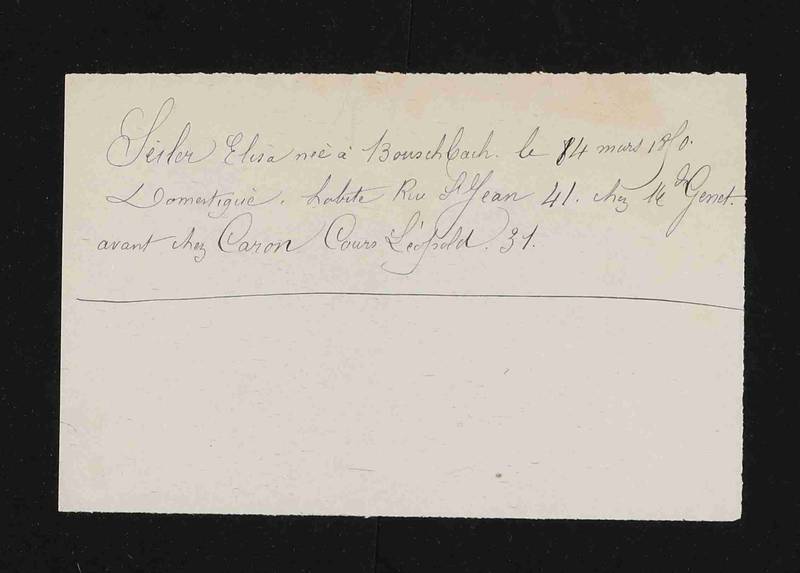 Seiler Elisa née à Bouschbach. le 14 mars
Domestique. habite Rue St Jean 41. chez Genet.
avant chez Caron Cours Léopold. 31.